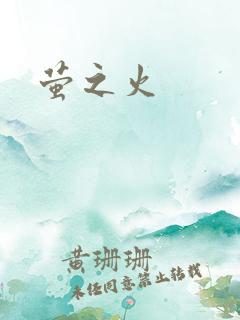 萤之火
黄珊珊
未经同意禁止转载